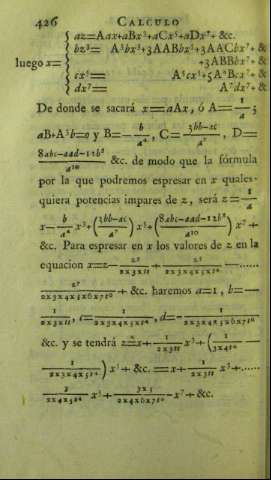 426 CALCULO
az=Aax+aBx³+aCx⁵+aDx⁷+ &c.
bz³= A³bx³+3AABbx⁵+3AACbx⁷+ &
luego x= +3ABBbx⁷+ &
cx⁵= A⁵cx⁵+5A⁴Bcx⁷+ &
dx⁷= A⁷dx⁷+ &
De donde se sacará x=aAx, ó A=1/a;
aB+A³b=0 y B=-b/a⁴, C=(3bb-ac)/a⁷, D=
(8abc-aad-12b³)/a¹⁰ &c. de modo que la fórmula
por la que podremos espresar en x quales-
quiera potencias impares de z, será z=x/a
x-b/a⁴ x³+((3bb-ac)/a⁷) x⁵+((8abc-aad-12b³)/a¹⁰) x⁷+
&c. Para espresar en x los valores de z en la
equacion x=z-z³/2x3r²+z⁵/2x3x4x5r⁴-......
z⁷/2x3x4x5x6x7r⁶ + &c. haremos a=1, b=-
1/2x3r², c=1/2x3x4x5r⁴, d=-1/2x3x4x5x6x7r⁶
&c. y se tendrá z=x+1/2x3r² x³+(1/3x4r⁴ -
1/2x3x4x5r⁴) x⁵+ &c. =x+1/2x3r² x³+......
3/2x4x5r⁴ x⁵+3x5/2x4x6x7r⁶ x⁷+ &c.